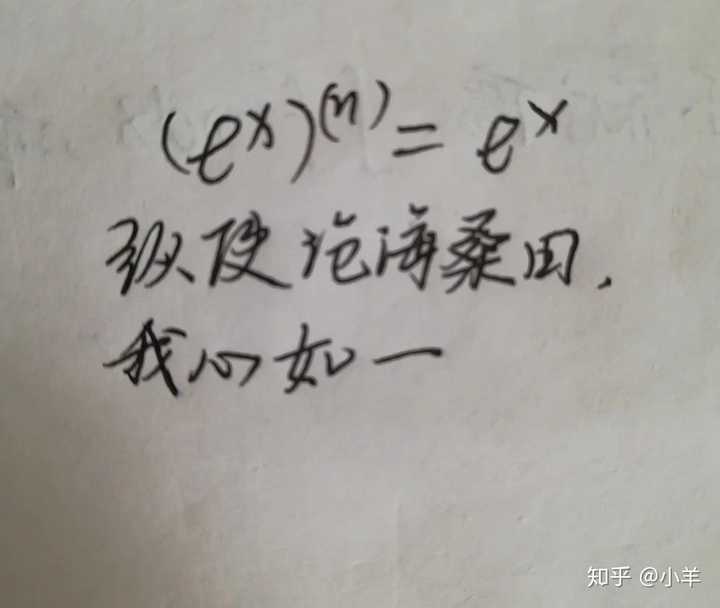 (eˣ)⁽ⁿ⁾ = eˣ
纵使沧海桑田,
我心如一
知乎 @小羊